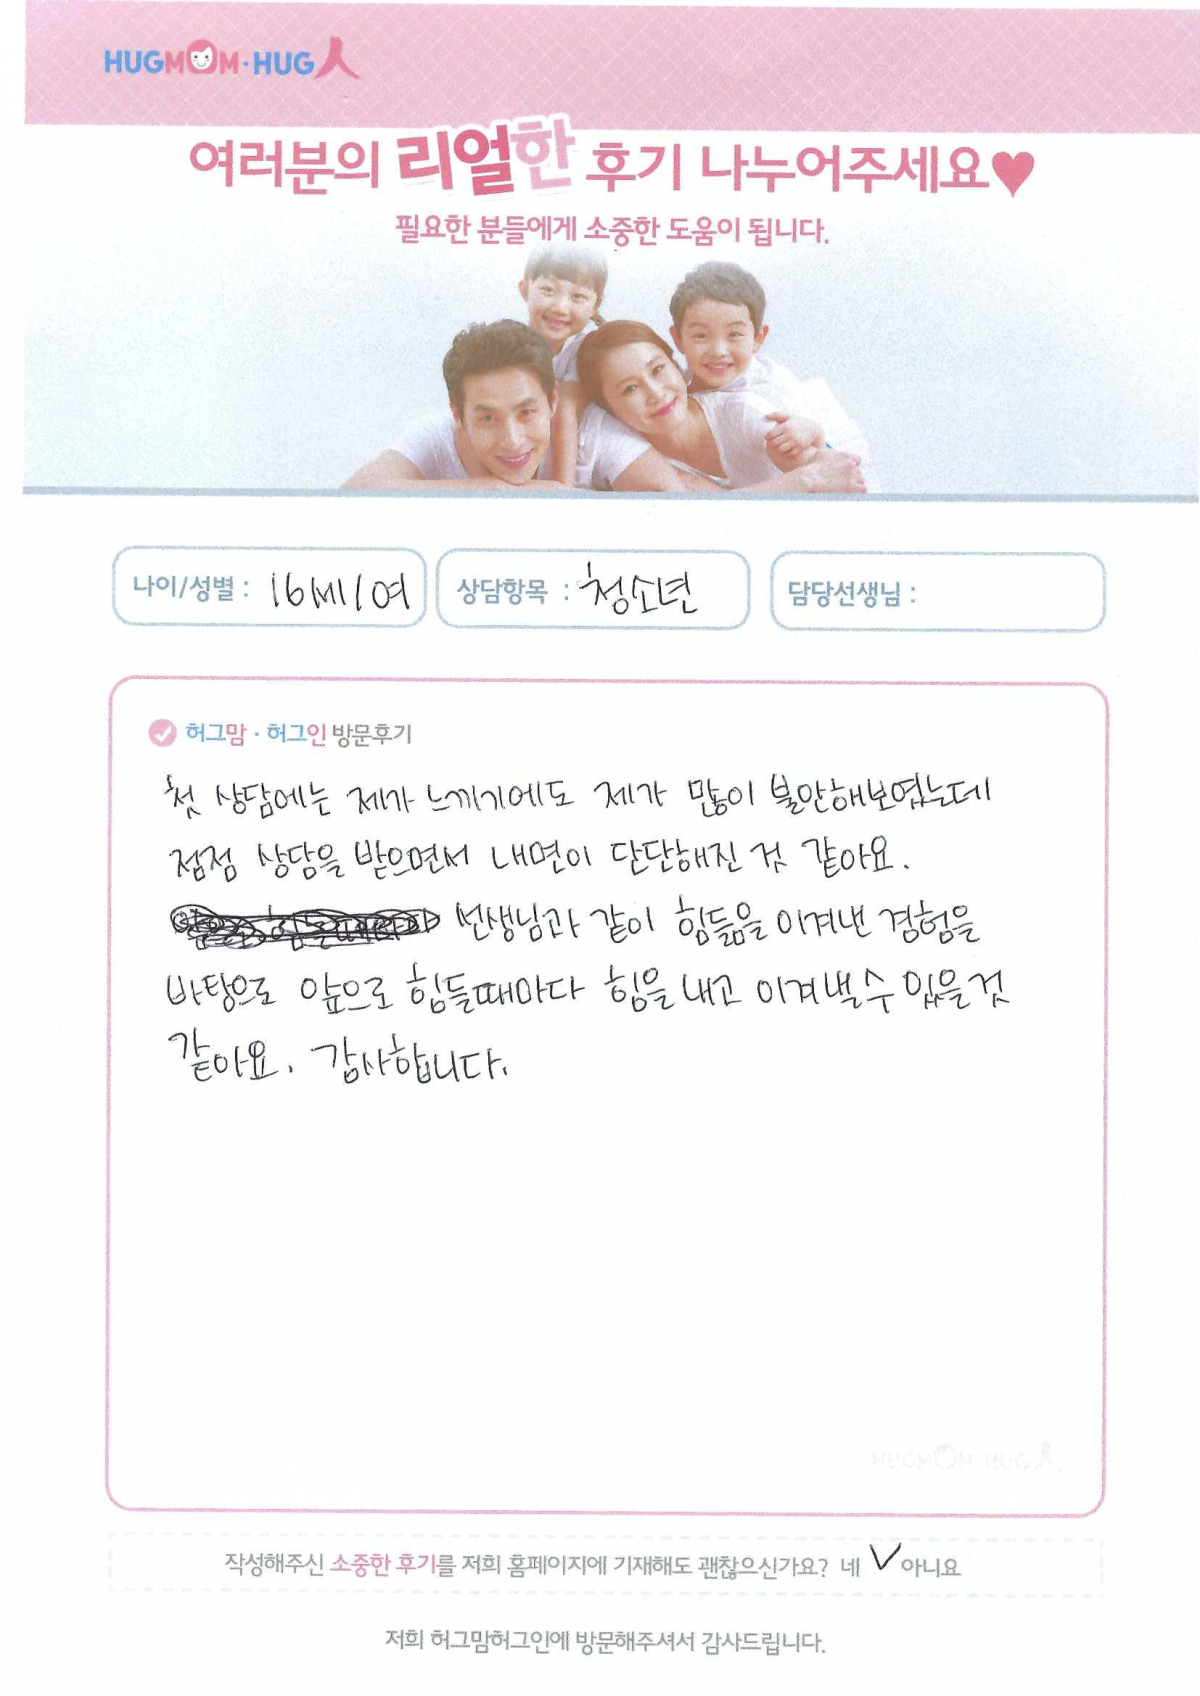 HUGMOM·HUG人
여러분의 리얼한 후기 나누어주세요♥
필요한 분들에게 소중한 도움이 됩니다.
나이/성별 : 16세/여 상담항목 : 청소년 담당선생님 :
허그맘·허그인 방문후기
첫 상담에는 제가 느끼기에도 제가 많이 불안해보였는데
점점 상담을 받으면서 내면이 단단해진 것 같아요.
선생님과 같이 힘듦을 이겨낸 경험을
바탕으로 앞으로 힘들때마다 힘을 내고 이겨낼 수 있을 것
같아요. 감사합니다.
작성해주신 소중한 후기를 저희 홈페이지에 기재해도 괜찮으신가요? 네 ✓ 아니요
저희 허그맘허그인에 방문해주셔서 감사드립니다.